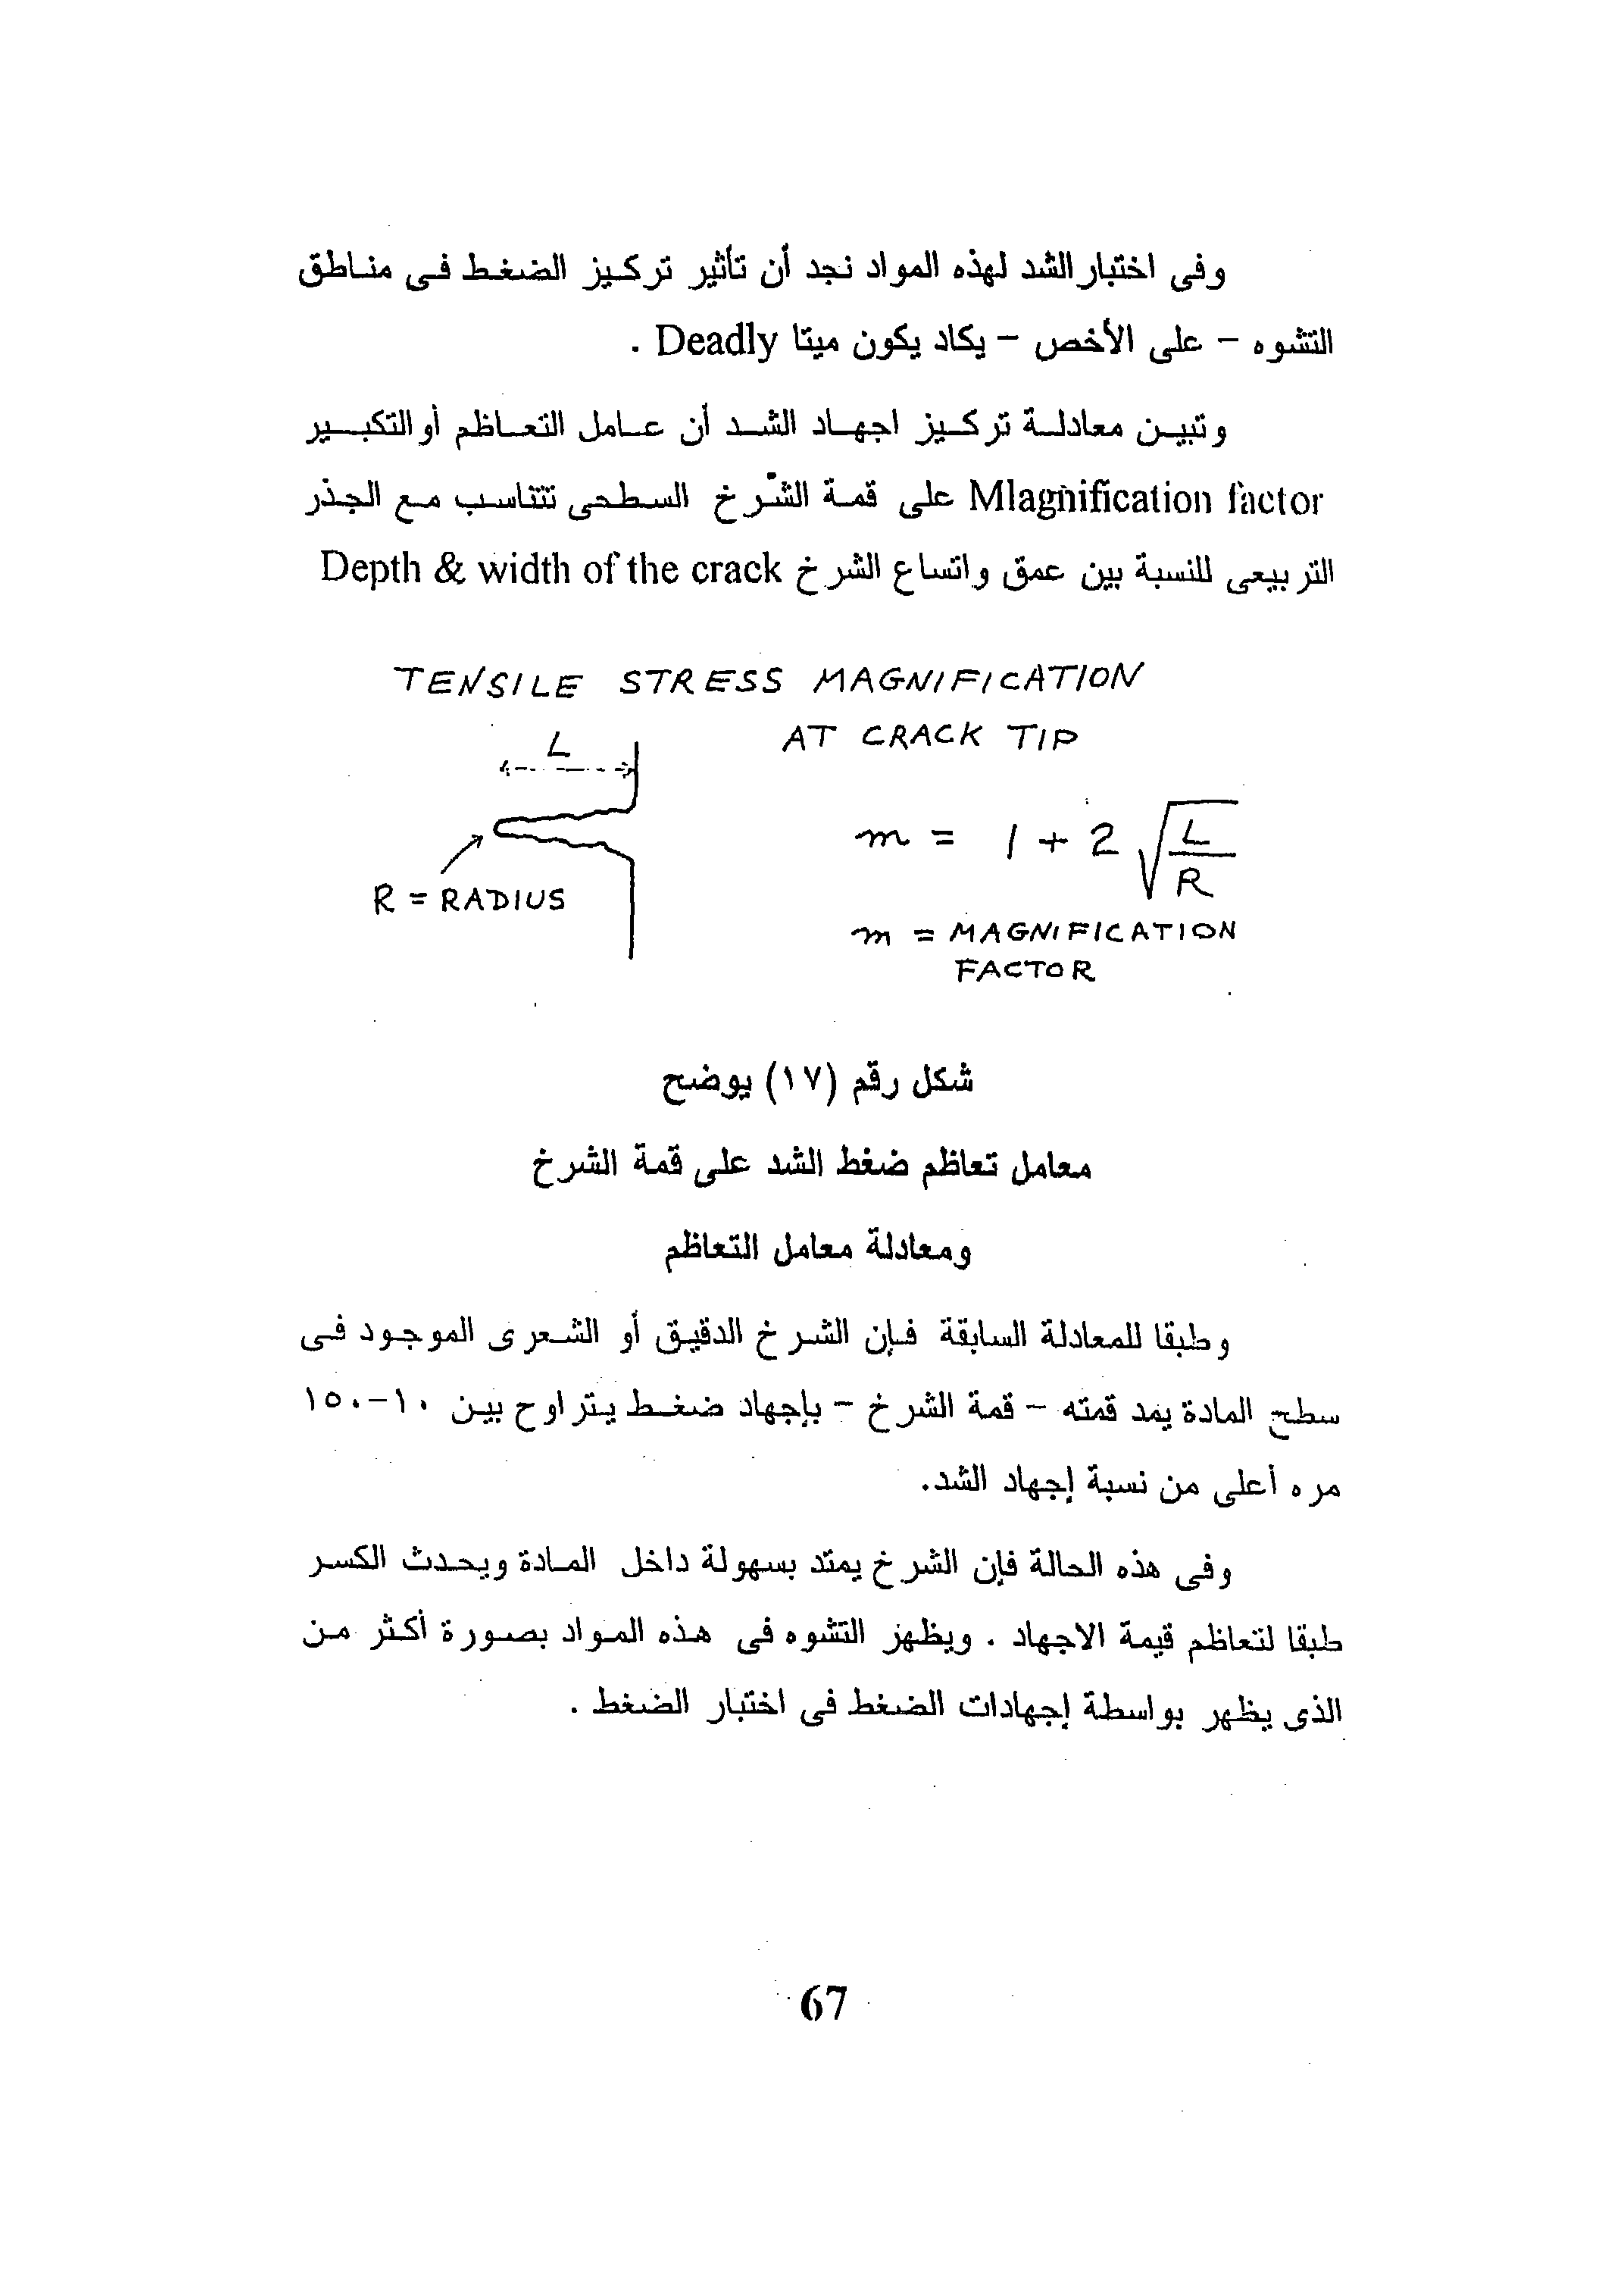 وفى اختبار الشد لهذه المواد نجد أن تأثير تركيز الضغط فى مناطق
التشوه – على الأخص – يكاد يكون ميتا Deadly .
وتبين معادلة تركيز اجهاد الشد أن عامل التعاظم أو التكبير
Mlagnification factor على قمة الشرخ السطحى تتناسب مع الجذر
التربيعى للنسبة بين عمق واتساع الشرخ Depth & width of the crack
TENSILE STRESS MAGNIFICATION
AT CRACK TIP
L
R = RADIUS
m = 1 + 2 √(L/R)
m = MAGNIFICATION
FACTOR
شكل رقم (١٧) يوضح
معامل تعاظم ضغط الشد على قمة الشرخ
ومعادلة معامل التعاظم
وطبقا للمعادلة السابقة فإن الشرخ الدقيق أو الشعرى الموجود فى
سطح المادة يمد قمته – قمة الشرخ – بإجهاد ضغط يتراوح بين ١٠-١٥٠
مره أعلى من نسبة إجهاد الشد.
وفى هذه الحالة فإن الشرخ يمتد بسهولة داخل المادة ويحدث الكسر
طبقا لتعاظم قيمة الاجهاد . ويظهر التشوه فى هذه المواد بصورة أكثر من
الذى يظهر بواسطة إجهادات الضغط فى اختبار الضغط .
67